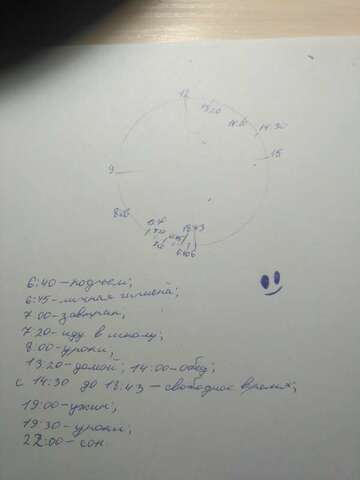 12
13:20
14:00
14:30
15
9
8:00
6:40-подъем;
6:45-личная гигиена;
7:00-завтрак;
7:20-иду в школу;
8:00-уроки;
13:20-домой; 14:00-обед;
с 14:30 до 18:43-свободное время;
19:00-ужин;
19:30-уроки;
22:00-сон.